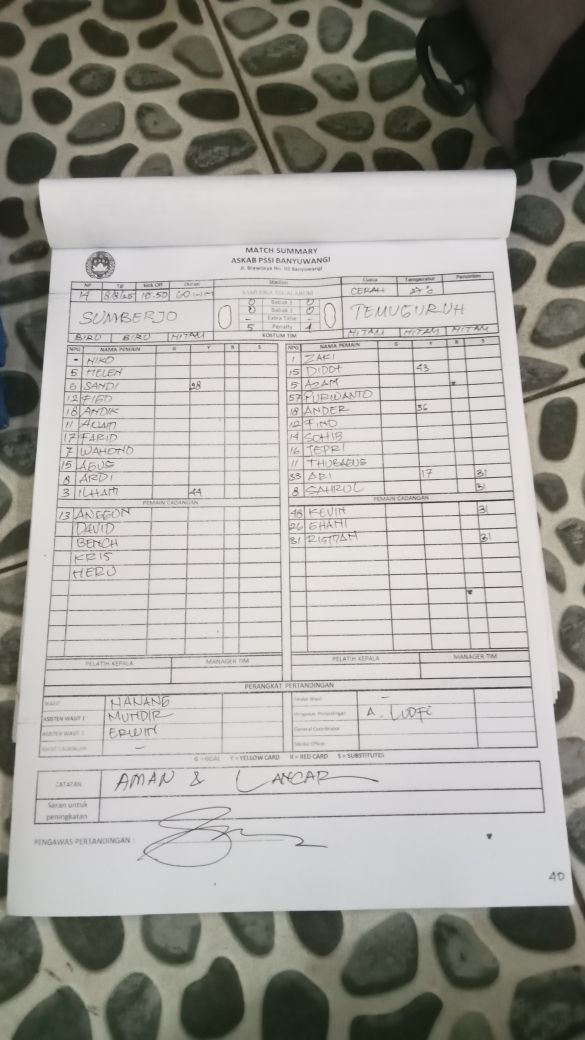 MATCH SUMMARY
ASKAB PSSI BANYUWANGI
Jl. Brawijaya No. Banyuwangi
NP Tgl Kick Off Durasi Stadion Cuaca Temperatur Penonton
H 8/8/25 CERAH 27°c
SUMBERJO 0 0 Babak 1 0 0 TEMUGURUH
0 Babak 2 0
- Extra Time -
5 Penalty 4
BIRU BIRU HITAM KOSTUM TIM HITAM HITAM HITAM
NPG NAMA PEMAIN G Y R S NPG NAMA PEMAIN G Y R S
- NIKO 1 ZAKI
HELEN 15 DIDOT 43
SANDI 5 AZAM
12 57 PURWANTO
18 ANDIK 18 ANDER 36
11 12 FINO
17 FARID 14 SOHIB
7 WAHONO 16 JEPRI
15 AGUS 11 THUBAGUS
8 ARDI 33 ARI 17 31
3 ILHAM 44 8 SAHRUL 31
PEMAIN CADANGAN PEMAIN CADANGAN
13 ANGGON 48 KEVIN 31
DAVID 26
BENCH 31
KRIS
HERU
PELATIH KEPALA MANAGER TIM PELATIH KEPALA MANAGER TIM
PERANGKAT PERTANDINGAN
WASIT NANANG -
ASISTEN WASIT 1 MUNDIR Pengawas Pertandingan A. LUDFI
ASISTEN WASIT 2 ERWIN General Coordinator
WASIT CADANGAN - Media Officer
G = GOAL Y = YELLOW CARD R = RED CARD S = SUBSTITUTES
CATATAN AMAN & LANCAR
Saran untuk
peningkatan
PENGAWAS PERTANDINGAN :
40